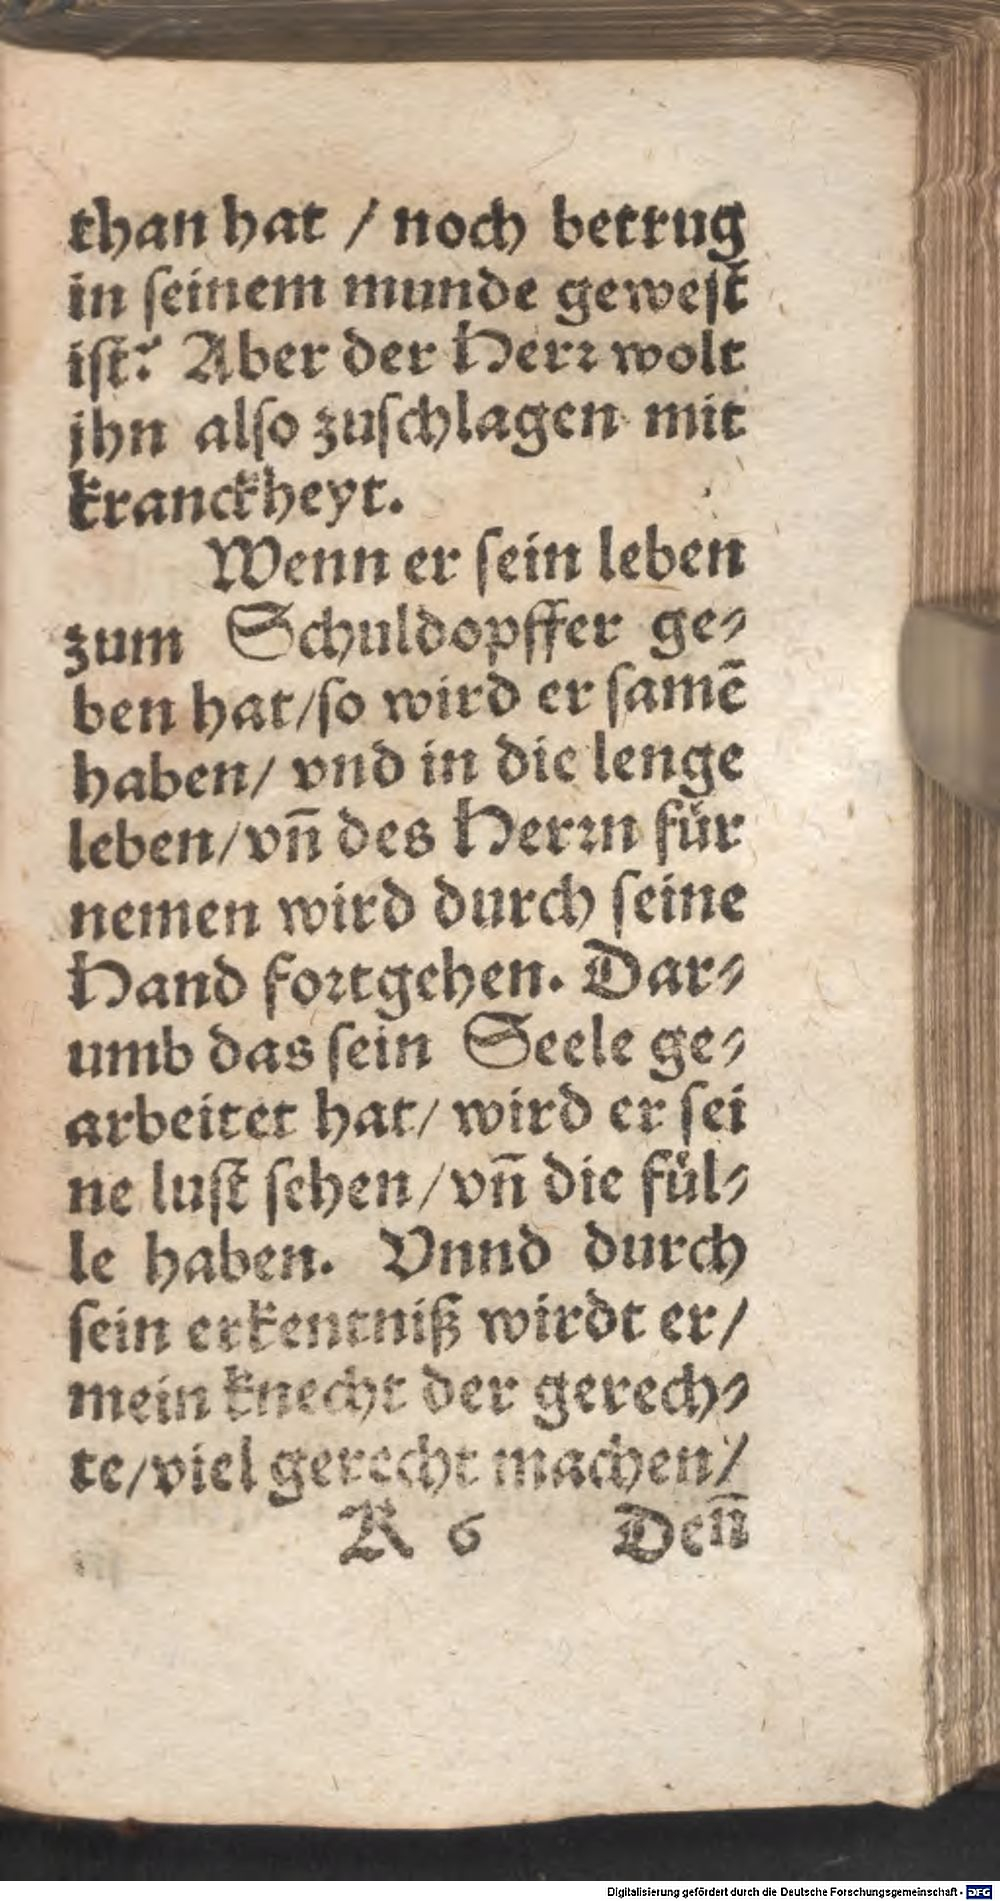 than hat / noch betrug
in ſeinem munde geweſt
iſt? Aber der Herꝛ wolt
jhn alſo zuſchlagen mit
kranckheyt.
Wenn er ſein leben
zum Schuldopffer ge⸗
ben hat/ſo wird er ſamē
haben/ vnd in die lenge
leben/vn̄ des Herꝛn fuͤr
nemen wird durch ſeine
Hand foꝛtgehen. Dar⸗
umb das ſein Seele ge⸗
arbeitet hat/ wird er ſei
ne luſt ſehen/vn̄ die fuͤl⸗
le haben. Vnnd durch
ſein erkentniß wirdt er/
mein knecht der gerech⸗
te/viel gerecht machen/
R 6 Den̄
Digitalisierung gefördert durch die Deutsche Forschungsgemeinschaft - DFG